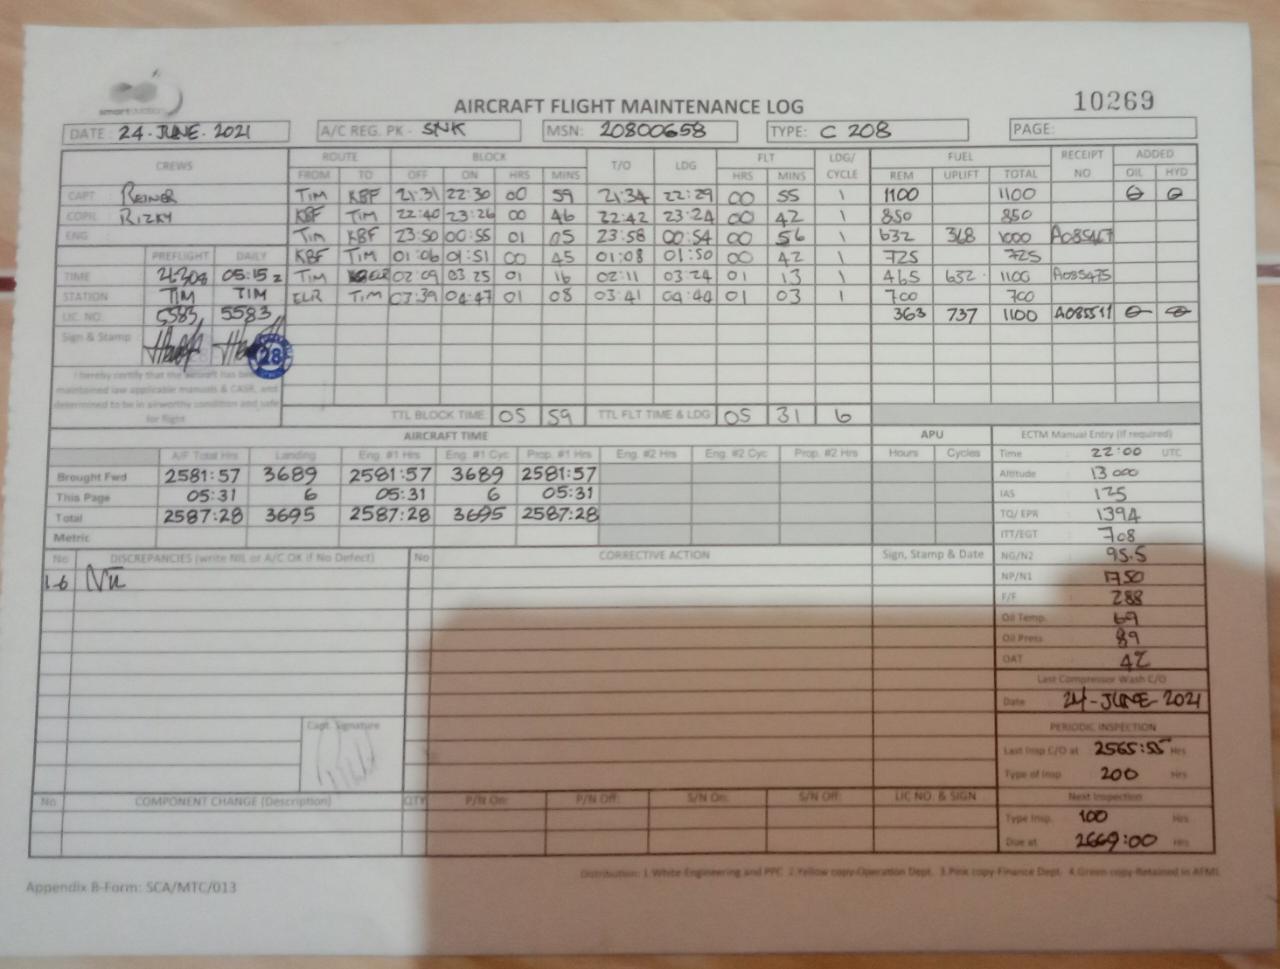 smart aviation
AIRCRAFT FLIGHT MAINTENANCE LOG
10269
DATE: 24-JUNE-2021 A/C REG. PK - SNK MSN: 20800658 TYPE: C 208 PAGE:
CREWS ROUTE BLOCK T/O LDG FLT LDG/CYCLE FUEL RECEIPT NO ADDED
FROM TO OFF ON HRS MINS HRS MINS REM UPLIFT TOTAL OIL HYD
CAPT REINER TIM KBF 21:31 22:30 00 59 21:34 22:29 00 55 1 1100 1100
COPIL RIZKY KBF TIM 22:40 23:26 00 46 22:42 23:24 00 42 1 850 850
ENG TIM KBF 23:50 00:55 01 05 23:58 00:54 00 56 1 632 368 1000
PREFLIGHT DAILY KBF TIM 01:06 01:51 00 45 01:08 01:50 00 42 1 725 725
TIME 05:15 z TIM 02:09 03:25 01 16 02:11 03:24 01 13 1 465 632 1100 A085475
STATION TIM TIM ELR TIM 03:39 04:47 01 08 03:41 04:44 01 03 1 700 700
LIC. NO. 5583 5583 363 737 1100 A085511
Sign & Stamp 28
I hereby certify that the aircraft has been
maintained iaw applicable manuals & CASR, and
determined to be in airworthy condition and safe
for flight
TTL BLOCK TIME 05 59 TTL FLT TIME & LDG 05 31 6
AIRCRAFT TIME APU ECTM Manual Entry (if required)
A/F Total Hrs Landing Eng. #1 Hrs Eng. #1 Cyc Prop. #1 Hrs Eng. #2 Hrs Eng. #2 Cyc Prop. #2 Hrs Hours Cycles Time : 22:00 UTC
Brought Fwd 2581:57 3689 2581:57 3689 2581:57 Altitude : 13000
This Page 05:31 6 05:31 6 05:31 IAS : 125
Total 2587:28 3695 2587:28 3695 2587:28 TQ/ EPR : 1394
Metric ITT/EGT : 708
No DISCREPANCIES (write NIL or A/C OK if No Defect) No CORRECTIVE ACTION Sign, Stamp & Date NG/N2 : 95.5
1-6 Nil NP/N1 : 1750
F/F : 288
Oil Temp. : 69
Oil Press : 89
OAT :
Last Compressor Wash C/O
Date : 24-JUNE-2021
Capt. Signature
PERIODIC INSPECTION
Last Insp C/O at : 2565:55 Hrs
Type of Insp : 200 Hrs
No COMPONENT CHANGE (Description) QTY P/N On: P/N Off: S/N On: S/N Off: LIC NO. & SIGN Next Inspection
Type Insp. : 100 Hrs
Due at : 2669:00 Hrs
Distribution: 1.White Engineering and PPC 2.Yellow copy-Operation Dept. 3.Pink copy-Finance Dept. 4.Green copy-Retained in AFML
Appendix B-Form: SCA/MTC/013